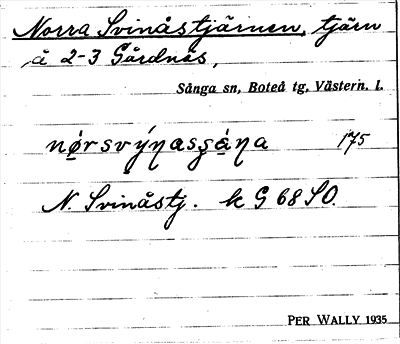 Norra Svinåstjärnen, tjärn
å 2-3 Gårdnäs,
Sånga sn, Boteå tg, Västern. l.
175
N. Svinåstj. k G 68 SO.
PER WALLY 1935